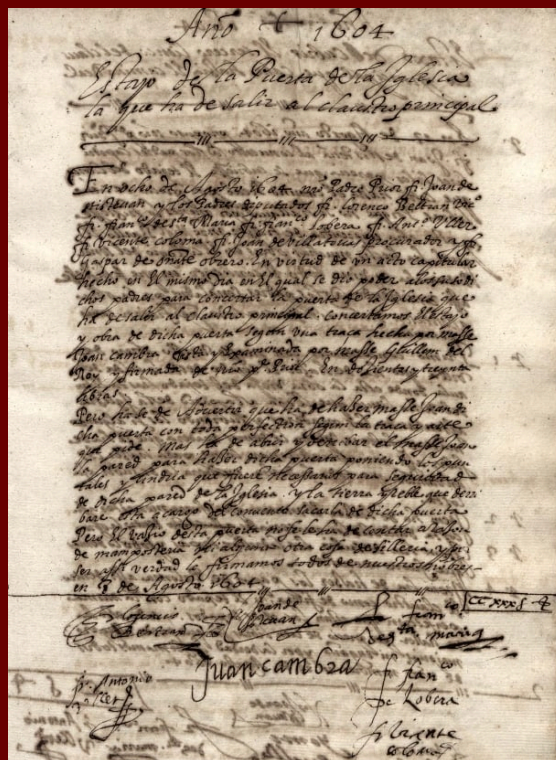 Año + 1604
Estajo de la Puerta de la Yglesia
la que ha de salir al claustro principal
En ocho de Agosto 1604 nro Padre Prior fr. Joan de
y los Padres deputados fr. Lorenço Beltran
fr. franco de sta Maria fr. franco Lobera fr. Antº Ller
fr. Vicente coloma fr. Joan de Villatorias procurador y fr.
Gaspar de oñate obrero. En virtud de un acto capitular
hecho en El mismo dia en El qual se dio poder a los sobredi
chos padres para concertar la puerta de la Iglesia que
ha de salir al claustro principal. concertamos El estajo
y obra de dicha puerta segun una traça hecha por masse
Joan cambra vista y Examinada por masse Guillem del
Rey y firmada de nro pe Prior. En dosientas treynta
libras
Pero ha se de Advertir que ha de haser masse Joan di
cha puerta con toda perfection segun la traça y arte
que pide. Mas ha de abrir y derrivar el masse Joan
la pared para haser dicha puerta poniendo los pun
tales que fuere necessarios para seguridad
de dicha pared de la Iglesia. y la tierra y reble que derri
bare esta a cargo del convento sacarla de dicha puerta
Pero El vassio desta puerta no se le ha de contar a rason
de mamposteria ni alguna otra cosa de silleria. y por
ser assi verdad lo firmamos todos de nuestros nobres
en 8 de Agosto 1604
CCXXX £
fr. Lorenço Beltran
fr. Joan de
fr. franco de sta maria
Juan cambra
fr. Antonio Ller
fr. franco de Lobera
fr. Vicente coloma